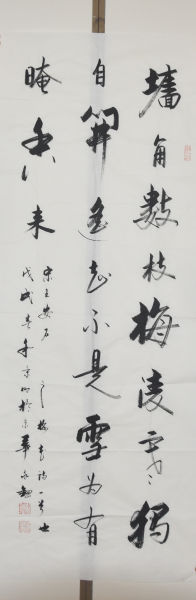 墙角数枝梅凌寒独
自开遥知不是雪为有
暗香来
宋王安石
梅花诗一首
戊戌年